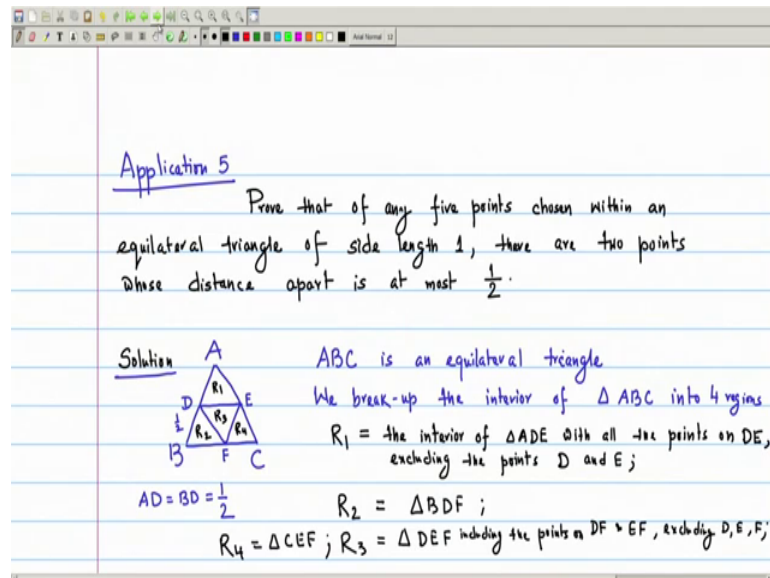 Arial Normal 12
Application 5
Prove that of any five points chosen within an
equilateral triangle of side length 1, there are two points
whose distance apart is at most 1/2.
Solution
A
D
E
B
F
C
R1
R3
R2
R4
1/2
ABC is an equilateral triangle
We break-up the interior of Δ ABC into 4 regions
R1 = the interior of ΔADE with all the points on DE,
excluding the points D and E;
AD = BD = 1/2
R2 = ΔBDF ;
R4 = ΔCEF ; R3 = ΔDEF including the points on DF & EF, excluding D, E, F;